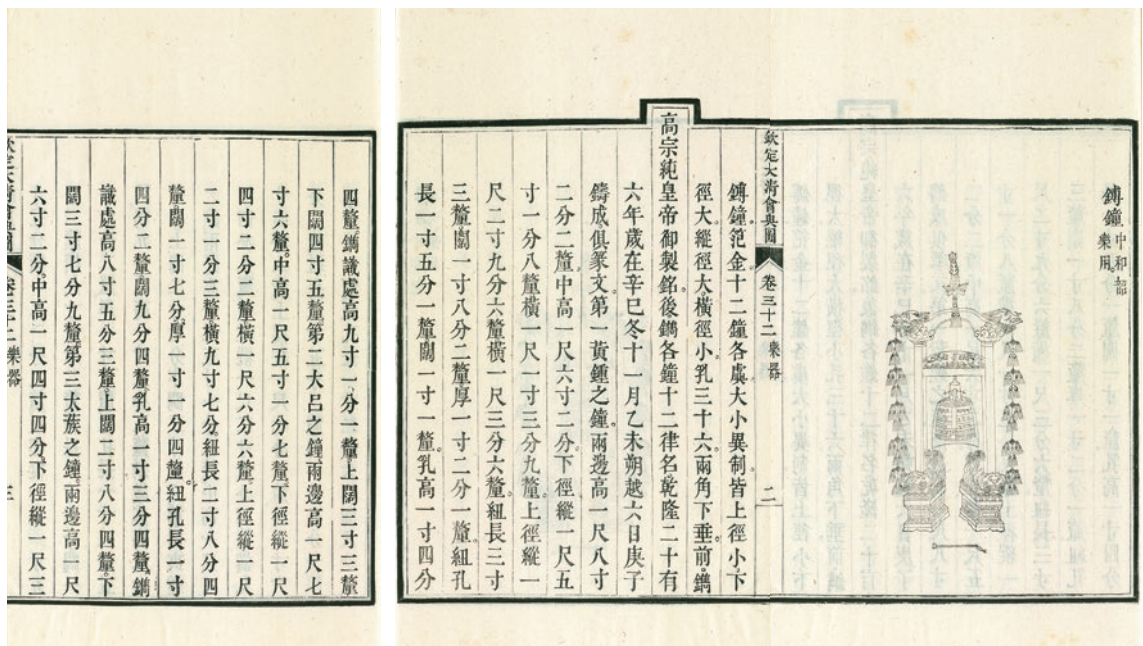 鎛鐘中和韶
樂用
欽定大清會典圖 卷三十二 樂器 二
鎛鐘。范金十二鐘各虡大小異制皆上徑小。下
徑大。縱徑大橫徑小。乳三十六。兩角下垂。前鐫
高宗純皇帝御製銘。後鐫各鐘十二律名。乾隆二十有
六年歲在辛巳冬十一月乙未朔越六日庚子
鑄成。俱篆文。第一黃鍾之鐘。兩邊高一尺八寸
二分二釐。中高一尺六寸二分。下徑縱一尺五
寸一分八釐。橫一尺一寸三分九釐。上徑縱一
尺二寸九分六釐。橫一尺三分六釐。紐長三寸
三釐。闊一寸八分二釐。厚一寸二分一釐。紐孔
長一寸五分一釐。闊一寸一釐。乳高一寸四分
四釐。鐫識處高九寸一分一釐。上闊三寸三釐。
下闊四寸五釐。第二大呂之鐘。兩邊高一尺七
寸六釐。中高一尺五寸一分七釐。下徑縱一尺
四寸二分二釐。橫一尺六分六釐。上徑縱一尺
二寸一分三釐。橫九寸七分。紐長二寸八分四
釐。闊一寸七分。厚一寸一分四釐。紐孔長一寸
四分二釐。闊九分四釐。乳高一寸三分四釐。鐫
識處高八寸五分三釐。上闊二寸八分四釐。下
闊三寸七分九釐。第三太蔟之鐘。兩邊高一尺
六寸二分。中高一尺四寸四分。下徑縱一尺三
欽定大清會典圖 卷三十二 樂器 三